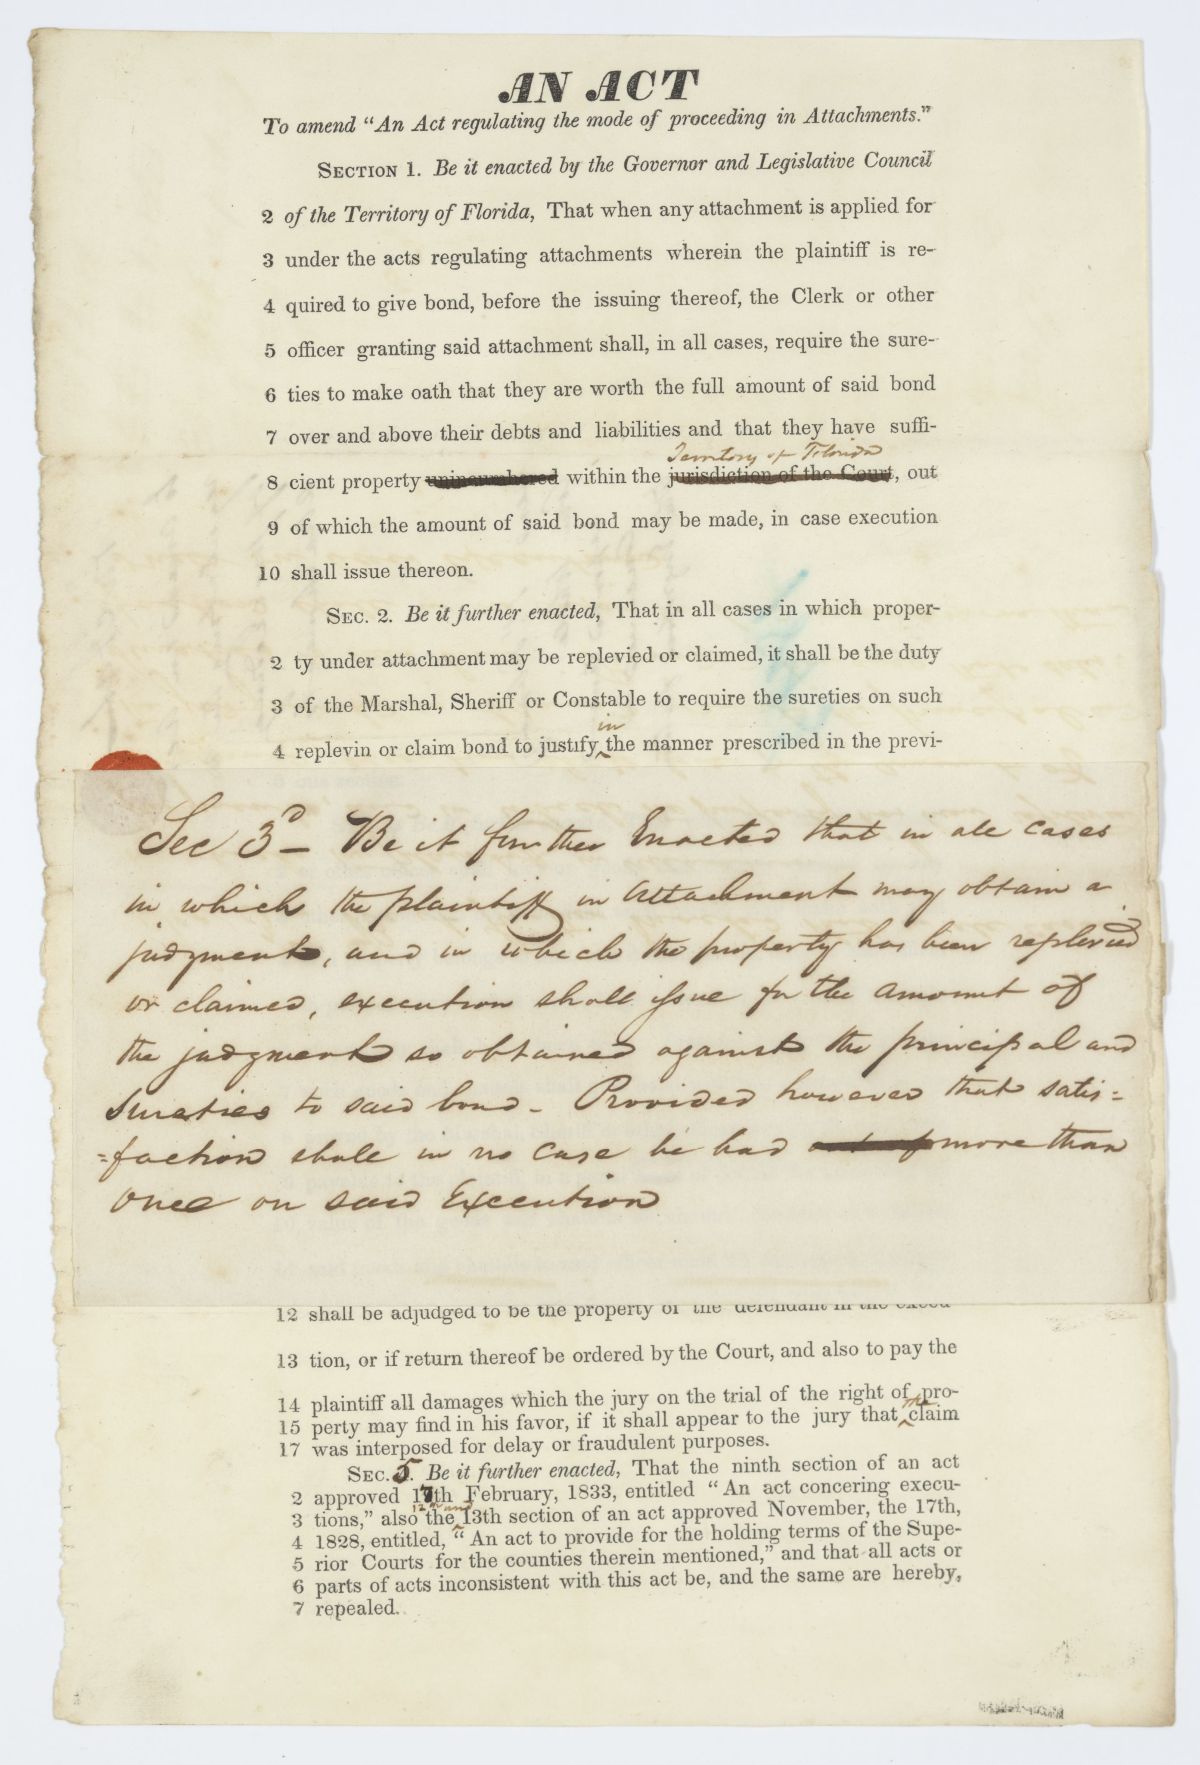 AN ACT
To amend "An Act regulating the mode of proceeding in Attachments."
SECTION 1. Be it enacted by the Governor and Legislative Council
2 of the Territory of Florida, That when any attachment is applied for
3 under the acts regulating attachments wherein the plaintiff is re-
4 quired to give bond, before the issuing thereof, the Clerk or other
5 officer granting said attachment shall, in all cases, require the sure-
6 ties to make oath that they are worth the full amount of said bond
7 over and above their debts and liabilities and that they have suffi-
Territory of Florida
8 cient property unincumbered within the jurisdiction of the Court, out
9 of which the amount of said bond may be made, in case execution
10 shall issue thereon.
SEC. 2. Be it further enacted, That in all cases in which proper-
2 ty under attachment may be replevied or claimed, it shall be the duty
3 of the Marshal, Sheriff or Constable to require the sureties on such
in
4 replevin or claim bond to justify ‸ the manner prescribed in the previ-
Sec 3d - Be it further Enacted that in all cases
in which the plaintiff in Attachment may obtain a
judgment, and in which the property has been replevied
or claimed, execution shall issue for the amount of
the judgment so obtained against the principal and
Sureties to said bond - Provided however that satis=
=faction shall in no case be had more than
once on said Execution
12 shall be adjudged to be the property of the defendant in the execu-
13 tion, or if return thereof be ordered by the Court, and also to pay the
14 plaintiff all damages which the jury on the trial of the right of pro-
the
15 perty may find in his favor, if it shall appear to the jury that ‸ claim
17 was interposed for delay or fraudulent purposes.
SEC. 5. Be it further enacted, That the ninth section of an act
2 approved 17th February, 1833, entitled "An act concering execu-
12th and
3 tions," also the ‸ 13th section of an act approved November, the 17th,
4 1828, entitled, "An act to provide for the holding terms of the Supe-
5 rior Courts for the counties therein mentioned," and that all acts or
6 parts of acts inconsistent with this act be, and the same are hereby,
7 repealed.